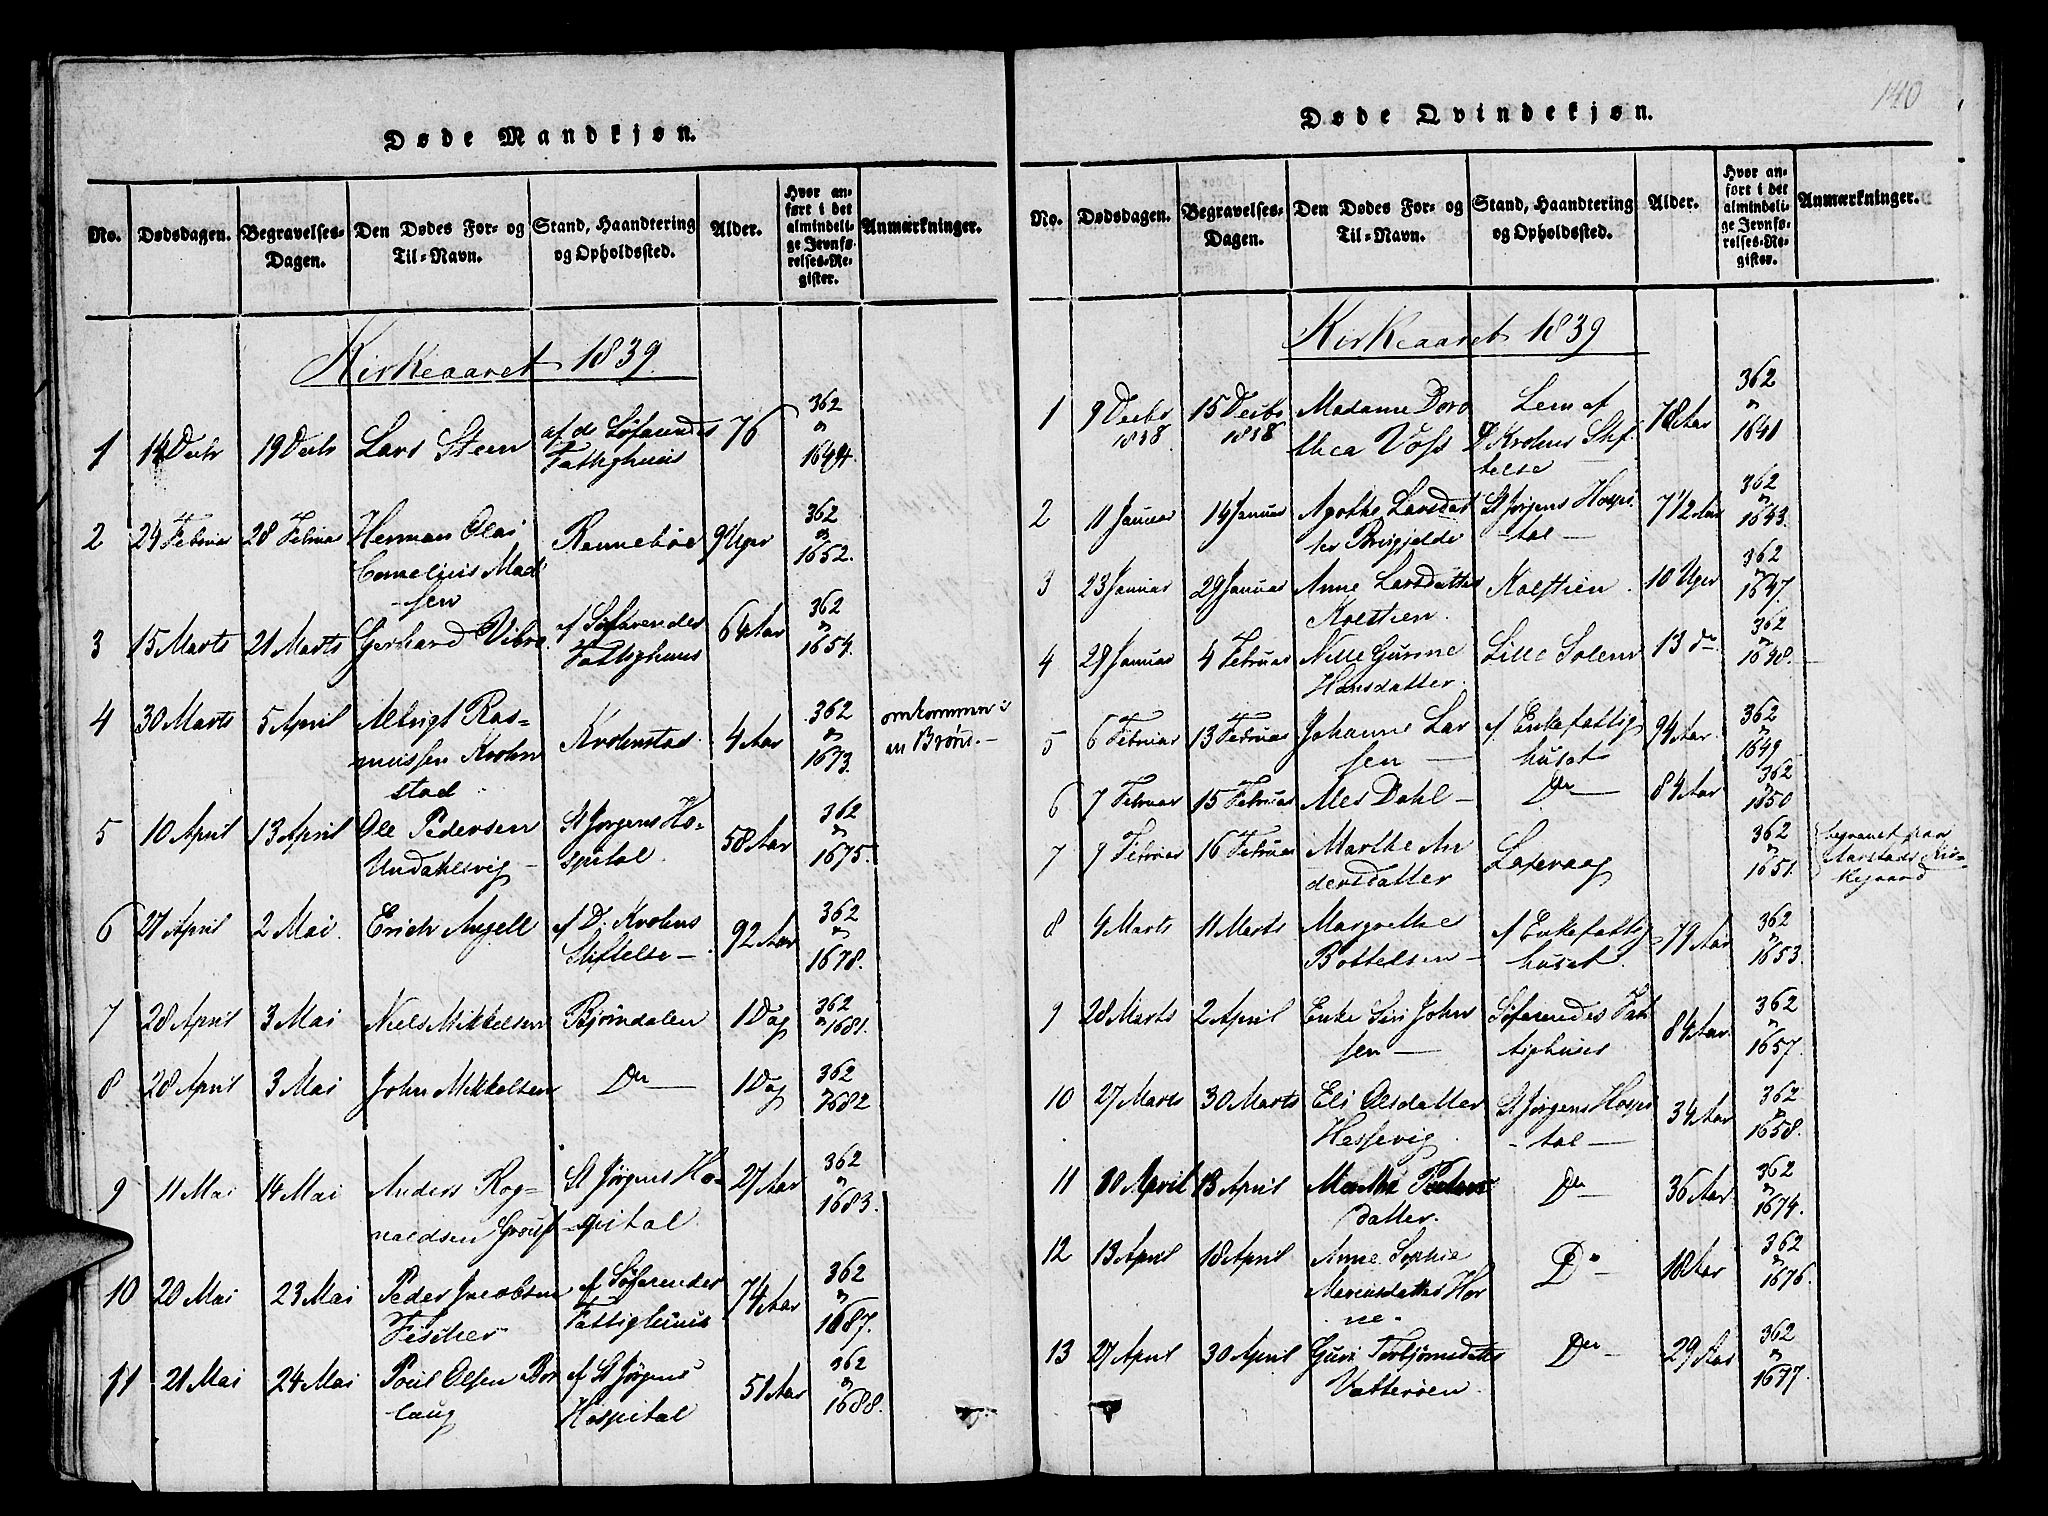 140
Døde Mandkjøn.
No. Dødsdagen. Begravelses-Dagen. Den Dødes For- og Til-Navn. Stand, Haandtering og Opholdssted. Alder. Hvor anført i det almindelige Jevnførelses-Register. Anmærkninger.
Kirkeaaret 1839.
1 14 Decbr 19 Decbr Lars Steen af de Søfarendes Fattighuus 76 362 n 1644.
2 24 Februar 28 Februar Herman Olai Cornelius Madsen Rennebøe 9 Uger 362 n 1652.
3 15 Marts 21 Marts Gerhard Vibe af Søfarendes Fattighuus 64 Aar 362 n 1654.
4 30 Marts 5 April Albrigt Rasmussen Krohnstad Krohnstad 4 Aar 362 n 1673. omkommen i en Brønd.
5 10 April 13 April Ole Pedersen Undahlsvig St Jørgens Hospital 58 Aar 362 n 1675.
6 27 April 2 Mai Erich Angell af D. Krohns Stiftelse 92 Aar 362 n 1678.
7 28 April 3 Mai Niels Mikkelsen Bjørndalen 1 Dag 362 n 1681.
8 28 April 3 Mai John Mikkelsen Do 1 Dag 362 1682
9 11 Mai 14 Mai Anders Rognaldsen St Jørgens Hospital 27 Aar 362 n 1683.
10 20 Mai 23 Mai Peder Jacobsen Fischer af Søfarendes Fattighuus 74 Aar 362 n 1687.
11 21 Mai 24 Mai Poul Olsen Borlaug af St Jørgens Hospital 51 Aar 362 n 1688.
Døde Qvindekjøn.
No. Dødsdagen. Begravelses-Dagen. Den Dødes For- og Til-Navn. Stand, Haandtering og Opholdssted. Alder. Hvor anført i det almindelige Jevnførelses-Register. Anmærkninger.
Kirkeaaret 1839
1 9 Decbr 1838 15 Decbr 1838 Madame Dorothea Voss Lem af D Krohns Stiftelse 78 Aar 362 n 1641
2 11 Januar 14 Januar Agothe Larsdatter St Jørgens Hospital 7 1/2 Aar 362 n 1643.
3 23 Januar 29 Januar Anne Larsdatter Kolstien Kolstien 10 Uger 362 n 1647.
4 29 Januar 4 Februar Nille Gurine Hansdatter Lille Solem 13 do 362 n 1648.
5 6 Februar 13 Februar Johanne Larsen af Enkefattighuset 94 Aar 362 n 1649
6 7 Februar 15 Februar Mes Dahl Do 84 Aar 362 n 1650
7 9 Februar 16 Februar Marthe Andersdatter Laxevaag 362 n 1651. begravet paa Aarstads Kirkegaard
8 4 Marts 11 Marts Margrethe Bottelsen af Enkefattighuset 79 Aar 362 n 1653.
9 28 Marts 2 April Enke Siri Johnsen Søfarendes Fattighuus 84 Aar 362 n 1657.
10 27 Marts 30 Marts Eli Olsdatter Hessevig St Jørgens Hospital 34 Aar 362 n 1658.
11 10 April 13 April Marthe Pedersdatter Do 36 Aar 362 n 1674.
12 13 April 18 April Anne Sophie Do 18 Aar 362 n 1676.
13 27 April 30 April Guri Torbjørnsdatter Vatterøen Do 29 Aar 362 n 1677.